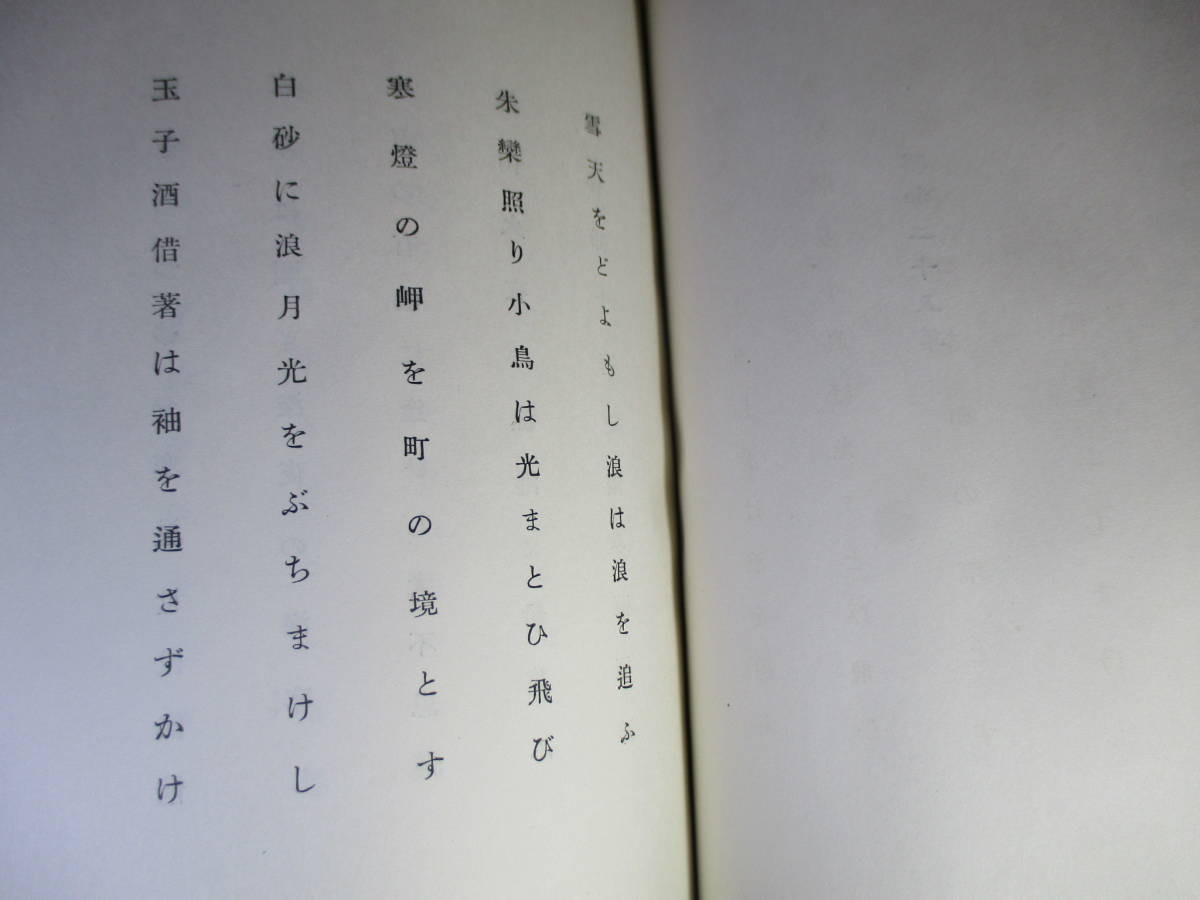 雪天をどよもし浪は浪を追ふ
朱欒照り小鳥は光まとひ飛び
寒燈の岬を町の境とす
白砂に浪月光をぶちまけし
玉子酒借著は袖を通さずかけ